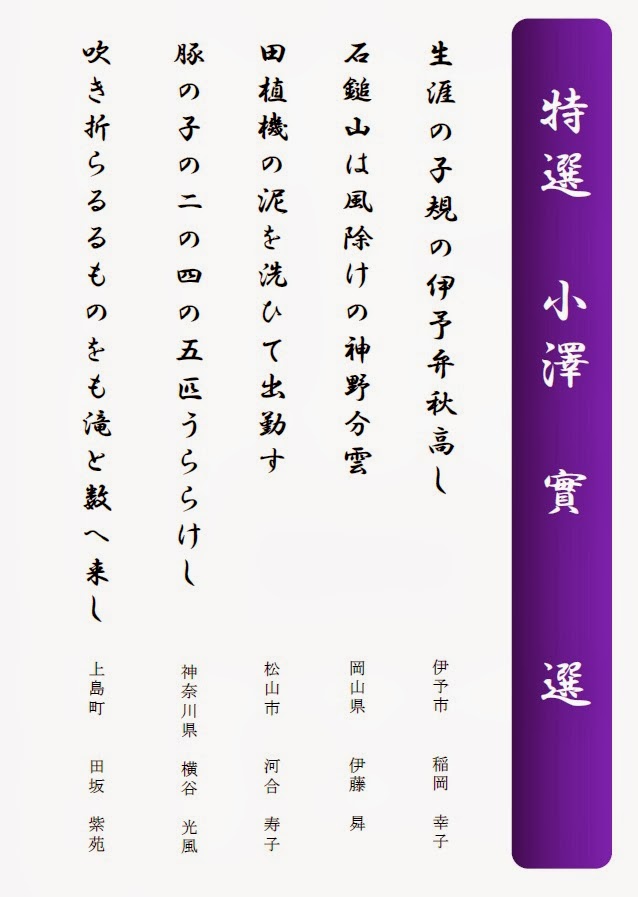 特選 小澤 實 選
生涯の子規の伊予弁秋高し 伊予市 稲岡 幸子
石鎚山は風除けの神野分雲 岡山県 伊藤 曻
田植機の泥を洗ひて出勤す 松山市 河合 寿子
豚の子の二の四の五匹うららけし 神奈川県 横谷 光風
吹き折らるるものをも滝と数へ来し 上島町 田坂 紫苑